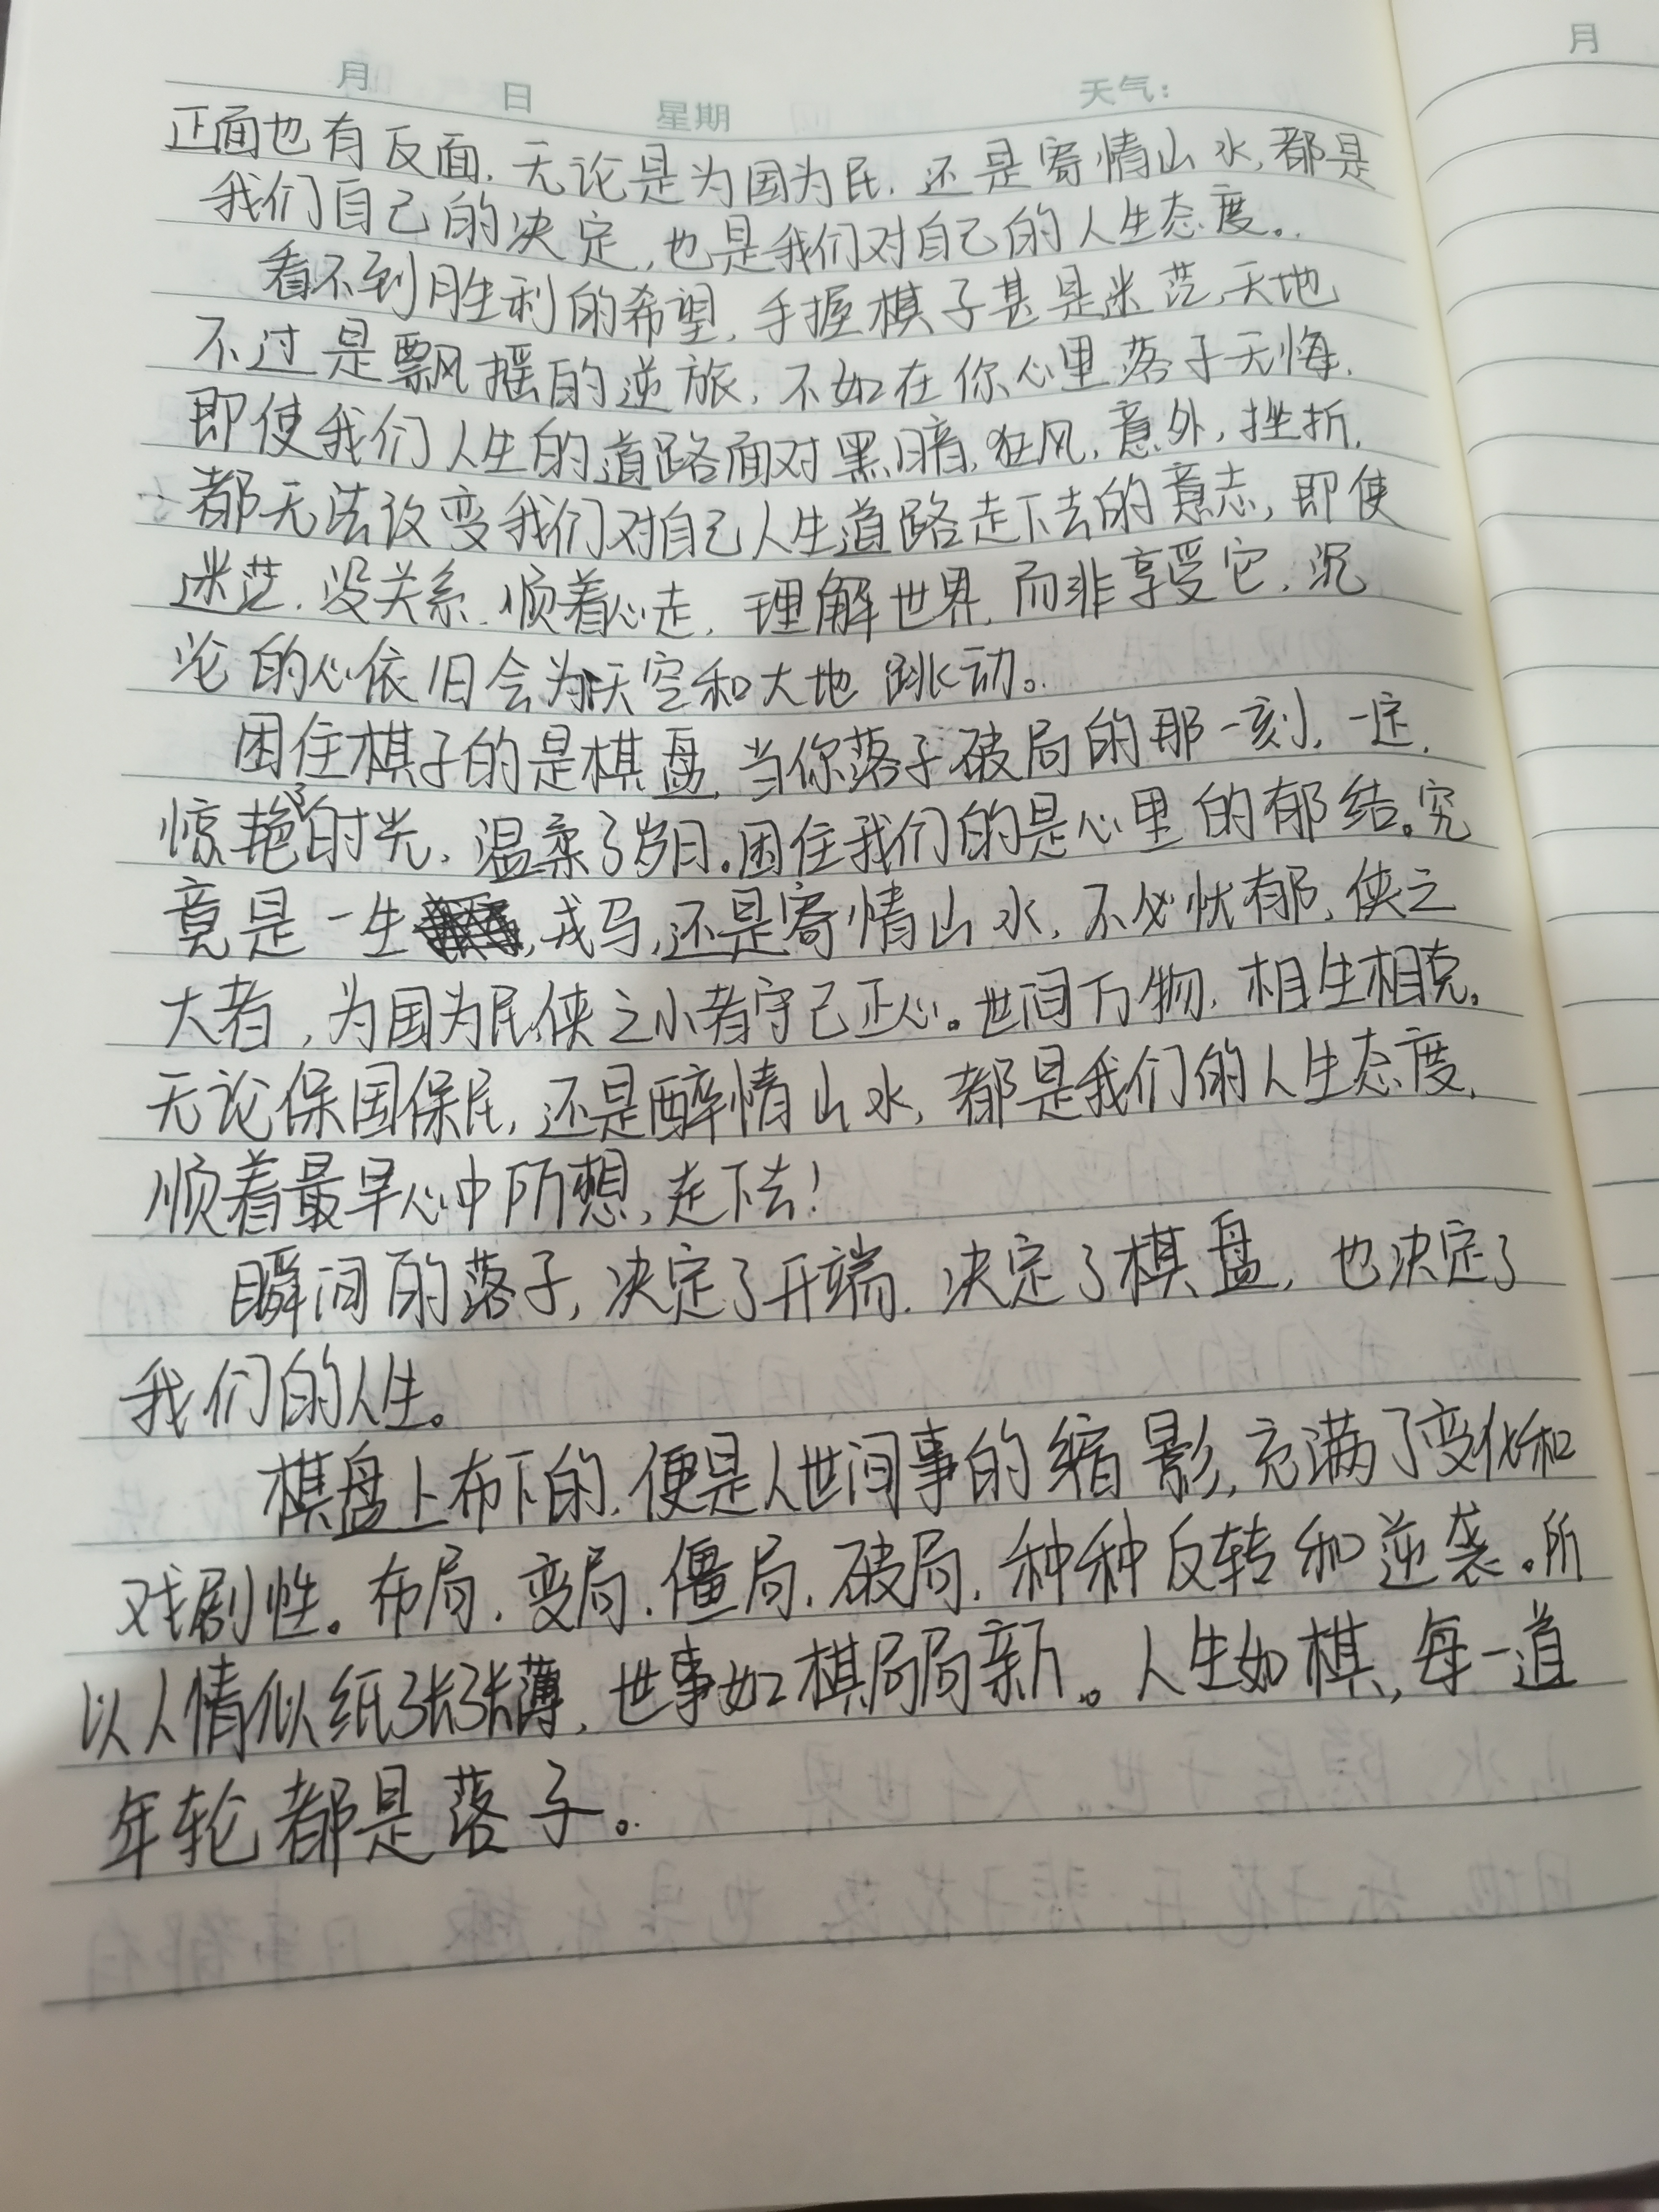 月 日 星期 天气: 月
正面也有反面,无论是为国为民,还是寄情山水,都是
我们自己的决定,也是我们对自己的人生态度。
看不到胜利的希望,手握棋子甚是迷茫,天地
不过是飘摇的逆旅,不如在你心里落子无悔,
即使我们人生的道路面对黑暗,狂风,意外,挫折,
都无法改变我们对自己人生道路走下去的意志,即使
迷茫,没关系,顺着心走,理解世界,而非享受它,沉
沦的心依旧会为天空和大地跳动。
困住棋子的是棋盘,当你落子破局的那一刻,一定,
惊艳了时光,温柔了岁月。困住我们的是心里的郁结。究
竟是一生,戎马,还是寄情山水,不必忧郁,侠之
大者,为国为民,侠之小者守己正心。世间万物,相生相克。
无论保国保民,还是醉情山水,都是我们的人生态度,
顺着最早心中所想,走下去!
瞬间的落子,决定了开端,决定了棋盘,也决定了
我们的人生。
棋盘上布下的,便是人世间事的缩影,充满了变化和
戏剧性。布局,变局,僵局,破局,种种反转和逆袭。所
以人情似纸张张薄,世事如棋局局新。人生如棋,每一道
年轮都是落子。